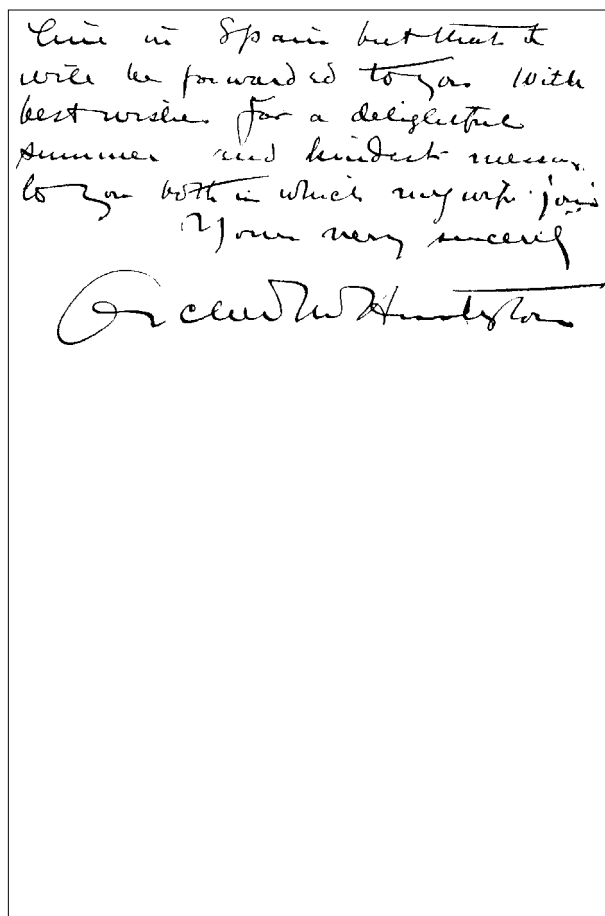 time in Spain but that it
will be forwarded to you With
best wishes for a delightful
summer and kindest messages
to you both in which my wife joins
Yours very sincerely
Archer M Huntington